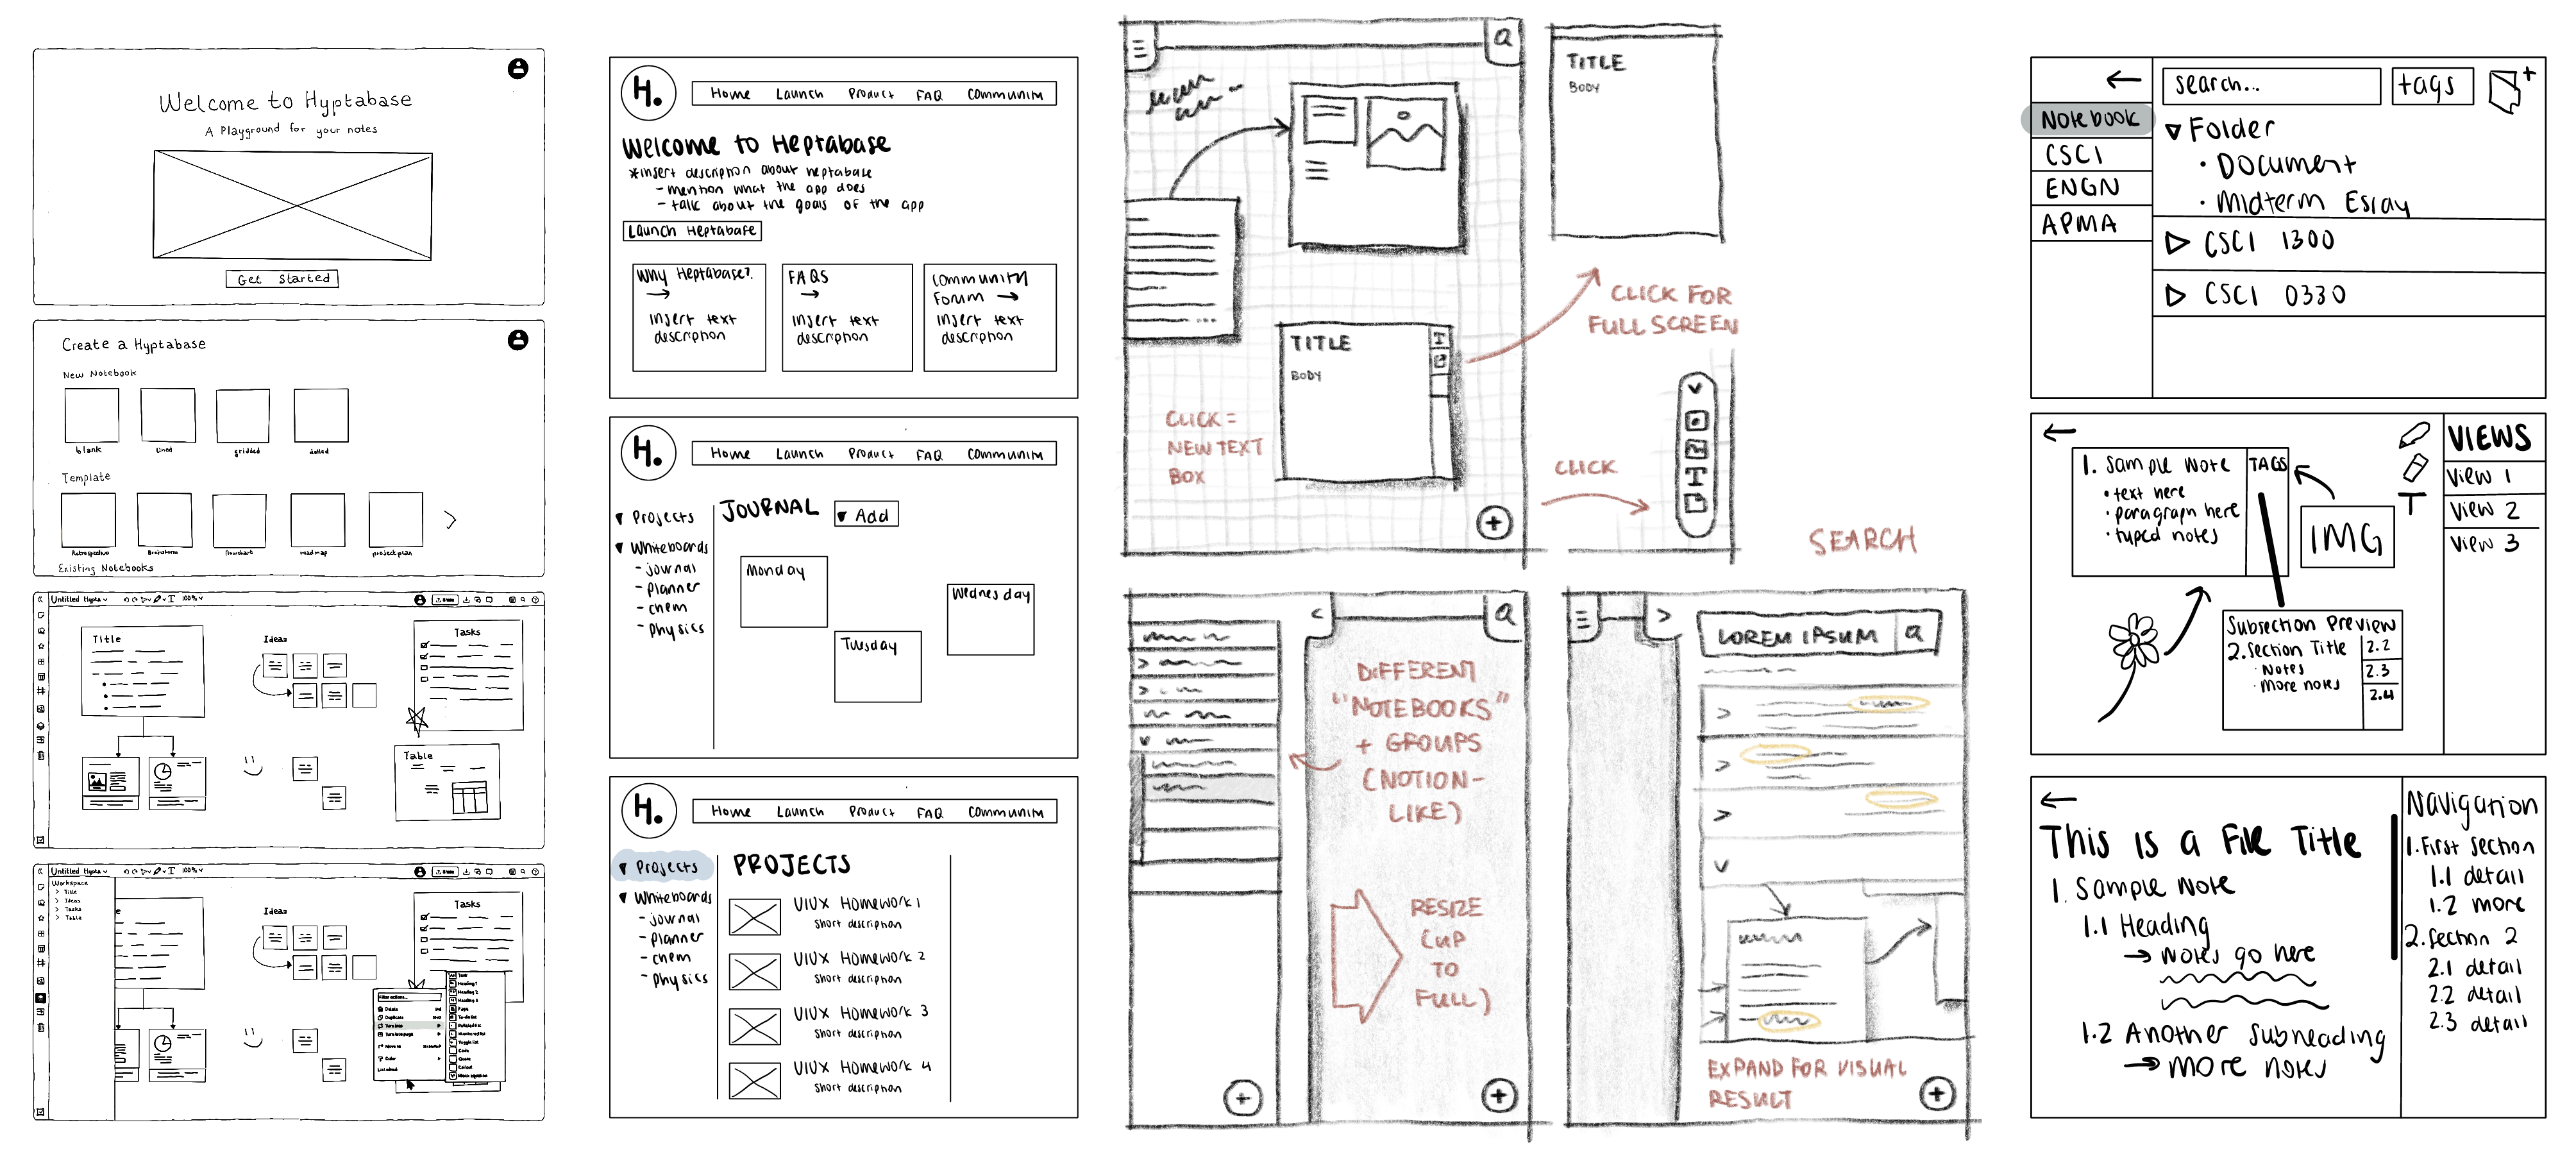 Welcome to Hyptabase
A Playground for your notes
Get Started
Create a Hyptabase
New Notebook
blank
lined
gridded
dotted
Template
Retrospective
Brainstorm
flowchart
roadmap
project plan
Existing Notebooks
Untitled Hypta
100%
Share
Title
Ideas
Tasks
Table
Untitled Hypta
100%
Share
Workspace
> Title
> Ideas
> Tasks
> Table
e
Ideas
Tasks
Filter actions...
Delete
Duplicate
Turn into
Color
Text
Heading 1
Heading 2
Heading 3
Page
To-do list
Bulleted list
Numbered list
Toggle list
Code
Quote
Callout
Block equation
H.
Home Launch Product FAQ Communim
Welcome to Heptabase
*insert description about heptabase
- mention what the app does
- talk about the goals of the app
Launch Heptabase
Why Heptabase?
→
insert text
description
FAQS
→
insert text
description
Community
Forum →
insert text
description
H.
Home Launch Product FAQ Communim
▼ Projects
▼ Whiteboards
- journal
- planner
- chem
- physics
JOURNAL
▼ Add
Monday
Tuesday
Wednesday
H.
Home Launch Product FAQ Communim
▼ Projects
▼ Whiteboards
- journal
- planner
- chem
- physics
PROJECTS
UIUX Homework 1
short description
UIUX Homework 2
short description
UIUX Homework 3
short description
UIUX Homework 4
short description
TITLE
BODY
CLICK FOR
FULL SCREEN
TITLE
BODY
T
CLICK =
NEW TEXT
BOX
+
CLICK
T
SEARCH
<
DIFFERENT
"NOTEBOOKS"
+ GROUPS
(NOTION-
LIKE)
RESIZE
(UP
TO
FULL)
+
+
>
LOREM IPSUM
EXPAND FOR VISUAL
RESULT
+
←
search...
tags
+
Notebook
CSCI
ENGN
APMA
▼ Folder
• Document
• Midterm Essay
▷ CSCI 1300
▷ CSCI 0330
←
1. Sample Note
• text here
• paragraph here
• typed notes
TAGS
IMG
T
VIEWS
View 1
View 2
View 3
Subsection Preview
2. Section Title
· Notes
· More notes
2.2
2.3
2.4
←
This is a File Title
1. Sample Note
1.1 Heading
→ Notes go here
1.2 Another Subheading
→ more notes
Navigation
1. First Section
1.1 detail
1.2 more
2. Section 2
2.1 detail
2.2 detail
2.3 detail